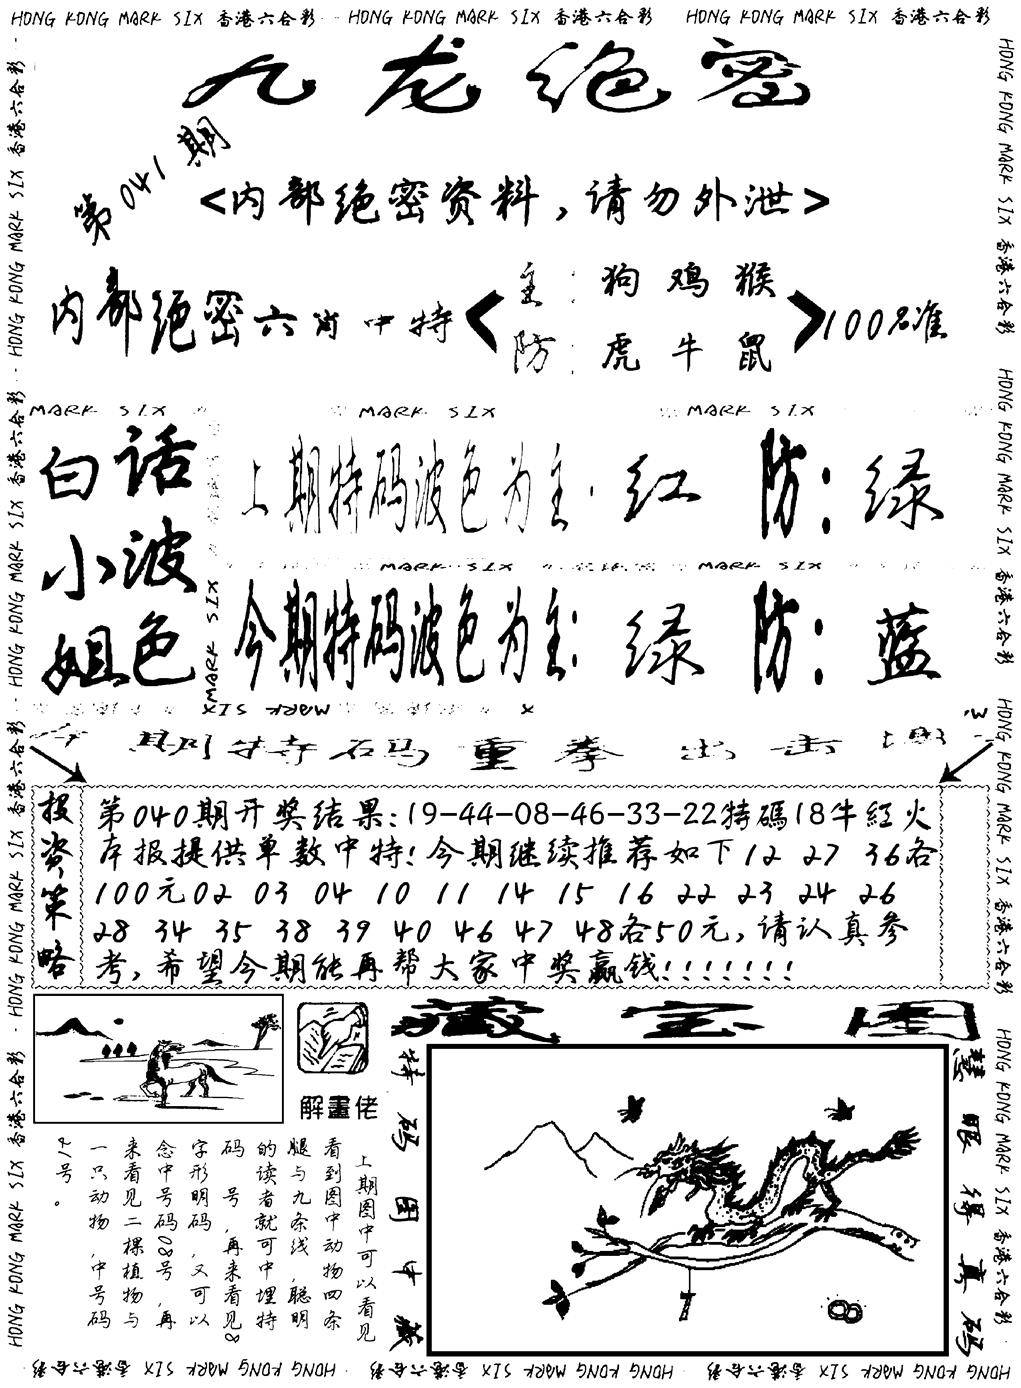 HONG KONG MARK SIX 香港六合彩 HONG KONG MARK SIX 香港六合彩 HONG KONG MARK SIX 香港六合彩
九龙绝密
第041期
<内部绝密资料,请勿外泄>
内部绝密六肖中特
主:狗鸡猴
防:虎牛鼠
100%准
MARK SIX MARK SIX MARK SIX
白话小姐波色
上期特码波色为主:红 防:绿
MARK SIX MARK SIX
今期特码波色为主:绿 防:蓝
MARK SIX
MARK SIX
今期特码重拳出击
投资策略
第040期开奖结果:19-44-08-46-33-22特碼18牛紅火
本报提供单数中特!今期继续推荐如下12 27 36各
100元02 03 04 10 11 14 15 16 22 23 24 26
28 34 35 38 39 40 46 47 48各50元,请认真参
考,希望今期能再帮大家中奖赢钱!!!!!!!
解畫佬
上期图中可以看见
看到图中动物四条
腿与九条线,聪明
的读者就可中埋特
码 号,再来看见8
字形明码,又可以
念中号码08号,再
来看见二棵植物与
一只动物,中号码
号。
藏宝图
特码图中藏
慧眼得真码
7
8
HONG KONG MARK SIX 香港六合彩 HONG KONG MARK SIX 香港六合彩 HONG KONG MARK SIX 香港六合彩
HONG KONG MARK SIX 香港六合彩 HONG KONG MARK SIX 香港六合彩 HONG KONG MARK SIX 香港六合彩 HONG KONG MARK SIX 香港六合彩
HONG KONG MARK SIX 香港六合彩 HONG KONG MARK SIX 香港六合彩 HONG KONG MARK SIX 香港六合彩 HONG KONG MARK SIX 香港六合彩